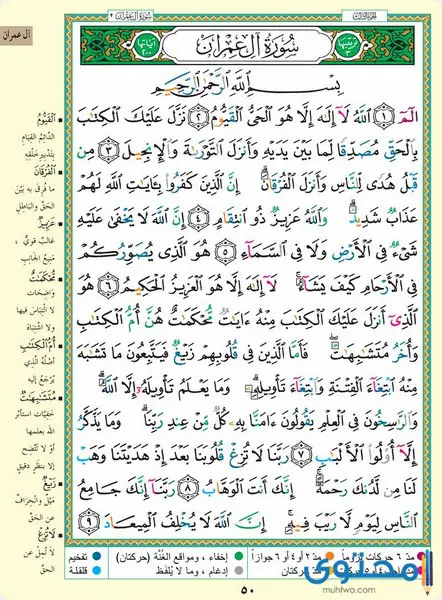 آل عمران
سُورَةُ آلِ عِمْرَان ٣
الجزء الثالث
ترتيبها ٣
سُورَةُ آلِ عِمْرَان
آياتها ٢٠٠
بِسْمِ اللَّهِ الرَّحْمَٰنِ الرَّحِيمِ
الٓمٓ ١ اللَّهُ لَآ إِلَٰهَ إِلَّا هُوَ الْحَيُّ الْقَيُّومُ ٢ نَزَّلَ عَلَيْكَ الْكِتَٰبَ
بِالْحَقِّ مُصَدِّقًا لِّمَا بَيْنَ يَدَيْهِ وَأَنزَلَ التَّوْرَىٰةَ وَالْإِنجِيلَ ٣ مِن
قَبْلُ هُدًى لِّلنَّاسِ وَأَنزَلَ الْفُرْقَانَ ۗ إِنَّ الَّذِينَ كَفَرُوا بِـَٔايَٰتِ اللَّهِ لَهُمْ
عَذَابٌ شَدِيدٌ ۗ وَاللَّهُ عَزِيزٌ ذُو انتِقَامٍ ٤ إِنَّ اللَّهَ لَا يَخْفَىٰ عَلَيْهِ
شَىْءٌ فِى الْأَرْضِ وَلَا فِى السَّمَآءِ ٥ هُوَ الَّذِى يُصَوِّرُكُمْ
فِى الْأَرْحَامِ كَيْفَ يَشَآءُ ۚ لَآ إِلَٰهَ إِلَّا هُوَ الْعَزِيزُ الْحَكِيمُ ٦ هُوَ
الَّذِىٓ أَنزَلَ عَلَيْكَ الْكِتَٰبَ مِنْهُ ءَايَٰتٌ مُّحْكَمَٰتٌ هُنَّ أُمُّ الْكِتَٰبِ
وَأُخَرُ مُتَشَٰبِهَٰتٌ ۖ فَأَمَّا الَّذِينَ فِى قُلُوبِهِمْ زَيْغٌ فَيَتَّبِعُونَ مَا تَشَٰبَهَ
مِنْهُ ابْتِغَآءَ الْفِتْنَةِ وَابْتِغَآءَ تَأْوِيلِهِۦ ۗ وَمَا يَعْلَمُ تَأْوِيلَهُۥٓ إِلَّا اللَّهُ ۗ
وَالرَّٰسِخُونَ فِى الْعِلْمِ يَقُولُونَ ءَامَنَّا بِهِۦ كُلٌّ مِّنْ عِندِ رَبِّنَا ۗ وَمَا يَذَّكَّرُ
إِلَّآ أُولُوا الْأَلْبَٰبِ ٧ رَبَّنَا لَا تُزِغْ قُلُوبَنَا بَعْدَ إِذْ هَدَيْتَنَا وَهَبْ
لَنَا مِن لَّدُنكَ رَحْمَةً ۚ إِنَّكَ أَنتَ الْوَهَّابُ ٨ رَبَّنَآ إِنَّكَ جَامِعُ
النَّاسِ لِيَوْمٍ لَّا رَيْبَ فِيهِ ۚ إِنَّ اللَّهَ لَا يُخْلِفُ الْمِيعَادَ ٩
الْقَيُّومُ
الدائم القيام
بتدبير خلقه
الْفُرْقَانَ
ما فرق به بين
الحق والباطل
عَزِيزٌ
غالب قوي
منيع الجانب
مُّحْكَمَٰتٌ
واضحات
لا التباس فيها
ولا اشتباه
أُمُّ الْكِتَٰبِ
أصله الذي
يرجع إليه
مُتَشَٰبِهَٰتٌ
خفيات استأثر
الله بعلمها
أو لا تتضح
إلا بنظر دقيق
زَيْغٌ
ميل وانحراف
عن الحق
لَا تُزِغْ
لا تمل عن
الحق
مد ٦ حركات لزوماً
مد ٢ أو ٤ أو ٦ جوازاً
إخفاء، ومواقع الغُنَّة (حركتان)
تفخيم
إدغام، وما لا يُلفَظ
قلقلة
٥٠
محتوى
muhtwa.com